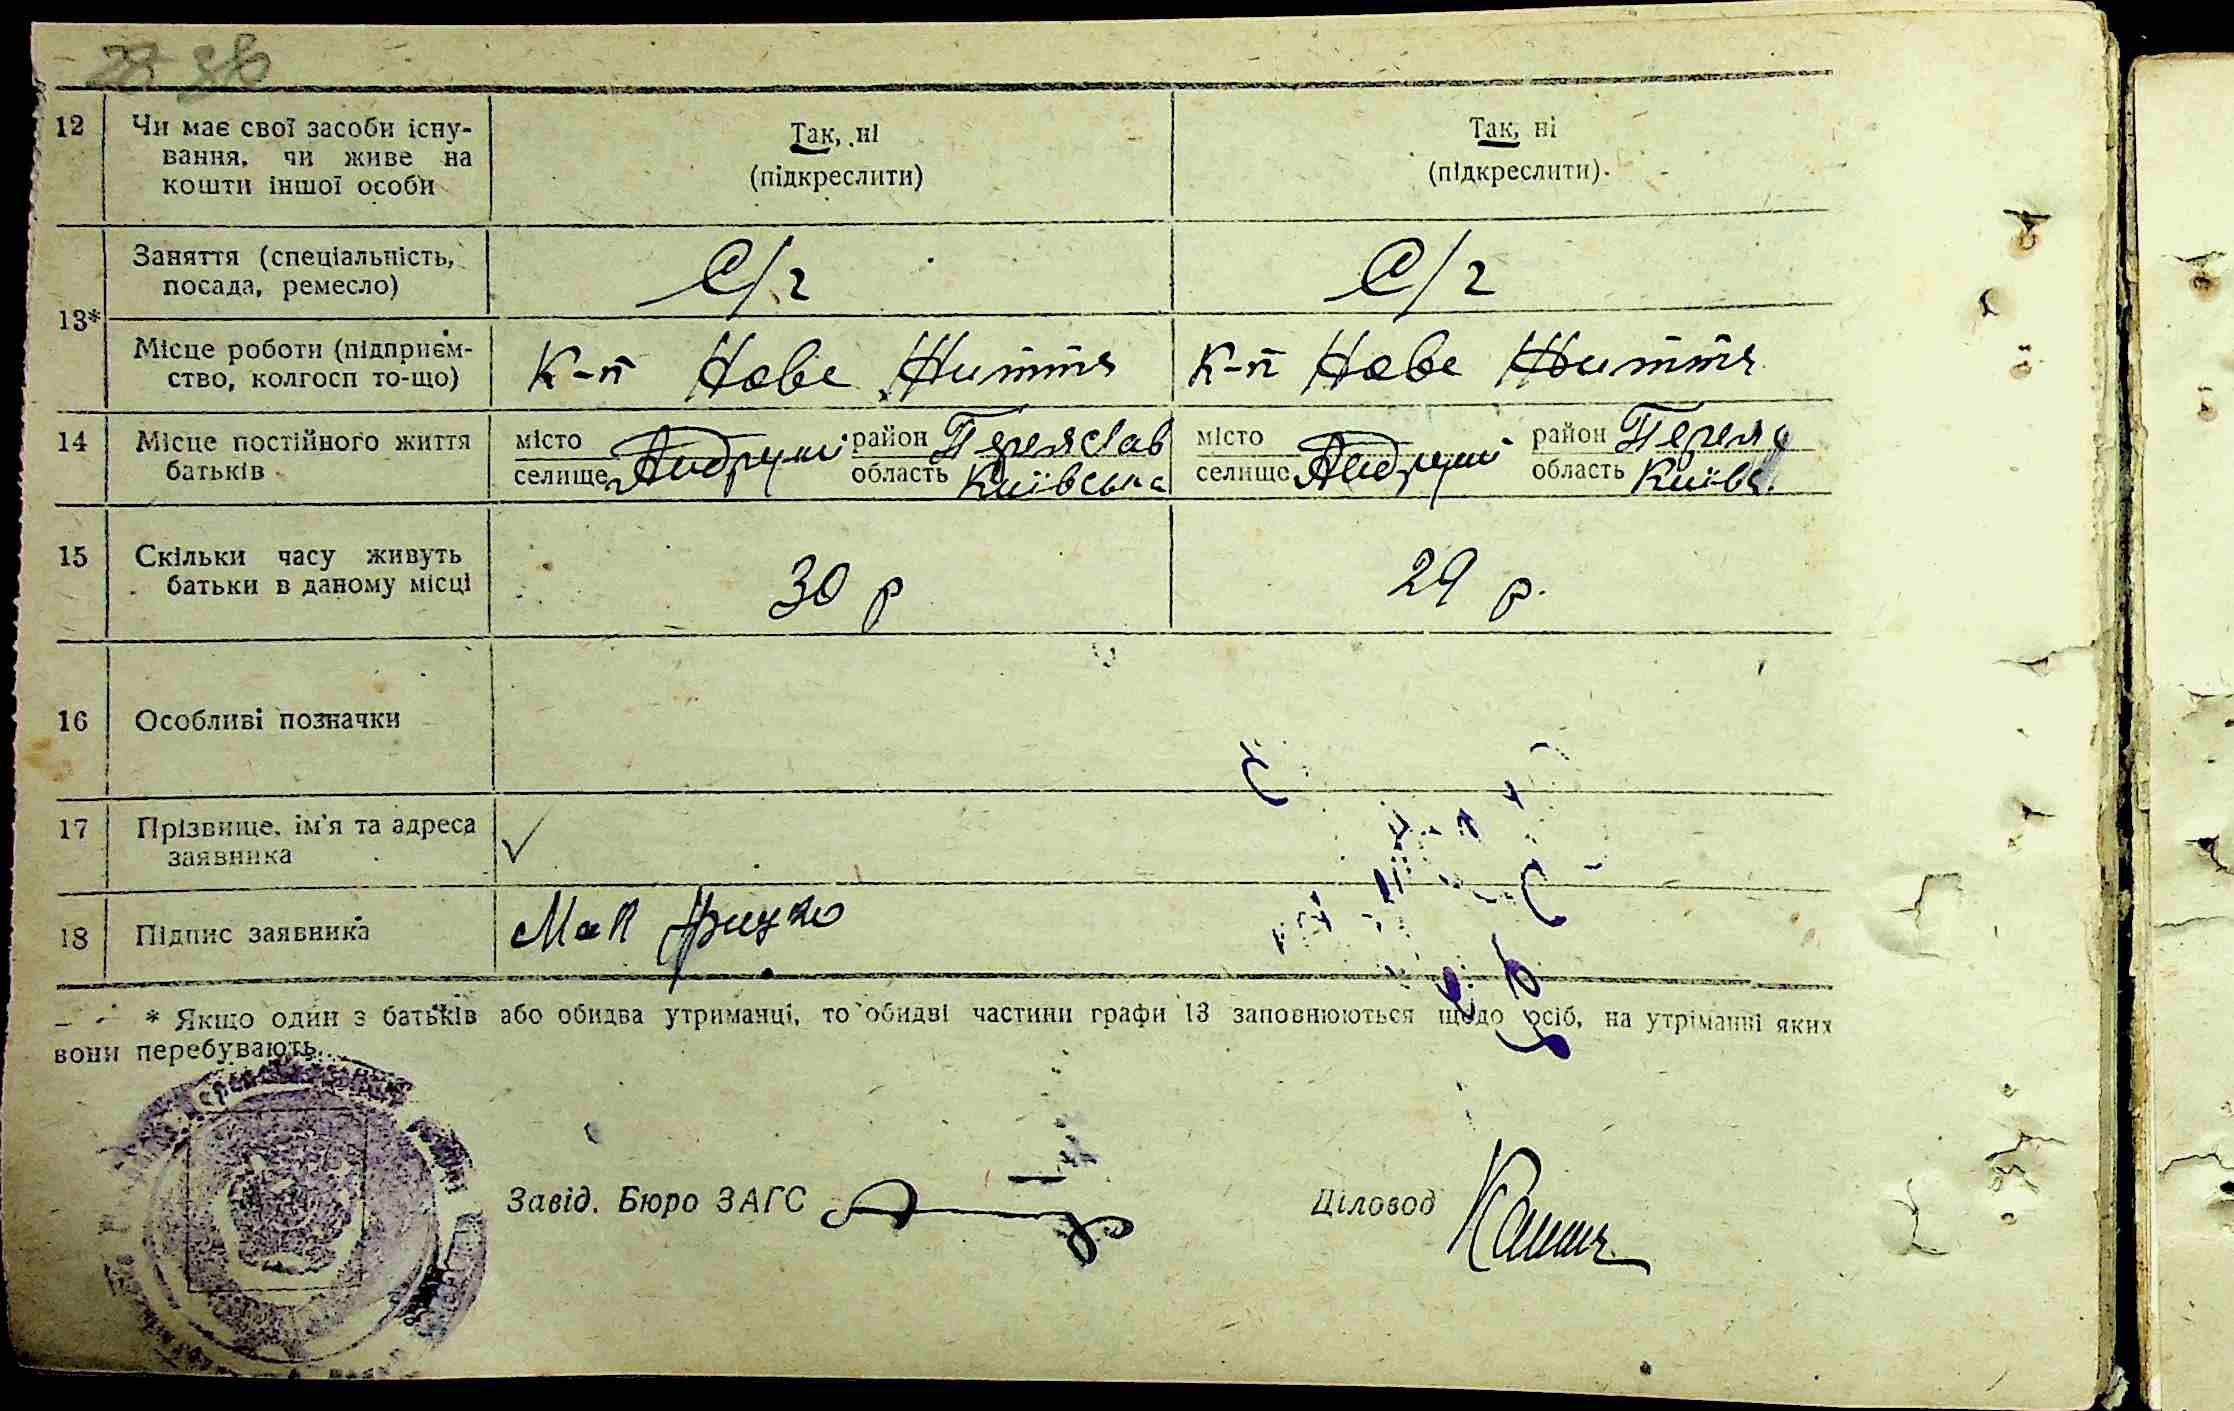 28 38
12 Чи має свої засоби існу-
вання, чи живе на
кошти іншої особи
Так, ні
(підкреслити)
Так, ні
(підкреслити).
13*
Заняття (спеціальність,
посада, ремесло)
С/г
С/г
Місце роботи (підприєм-
ство, колгосп то-що)
К-п Нове Життя
К-п Нове Життя
14 Місце постійного життя
батьків
місто
селище Андруші
район Переяслав
область Київська
місто
селище Андруші
район Переяс
область Київс.
15 Скільки часу живуть
батьки в даному місці
30 р
29 р.
16 Особливі позначки
17 Прізвище, ім'я та адреса
заявника
✓
18 Підпис заявника
* Якщо один з батьків або обидва утриманці, то обидві частини графи 13 заповнюються щодо осіб, на утріманні яких
вони перебувають.
Завід. Бюро ЗАГС
Діловод